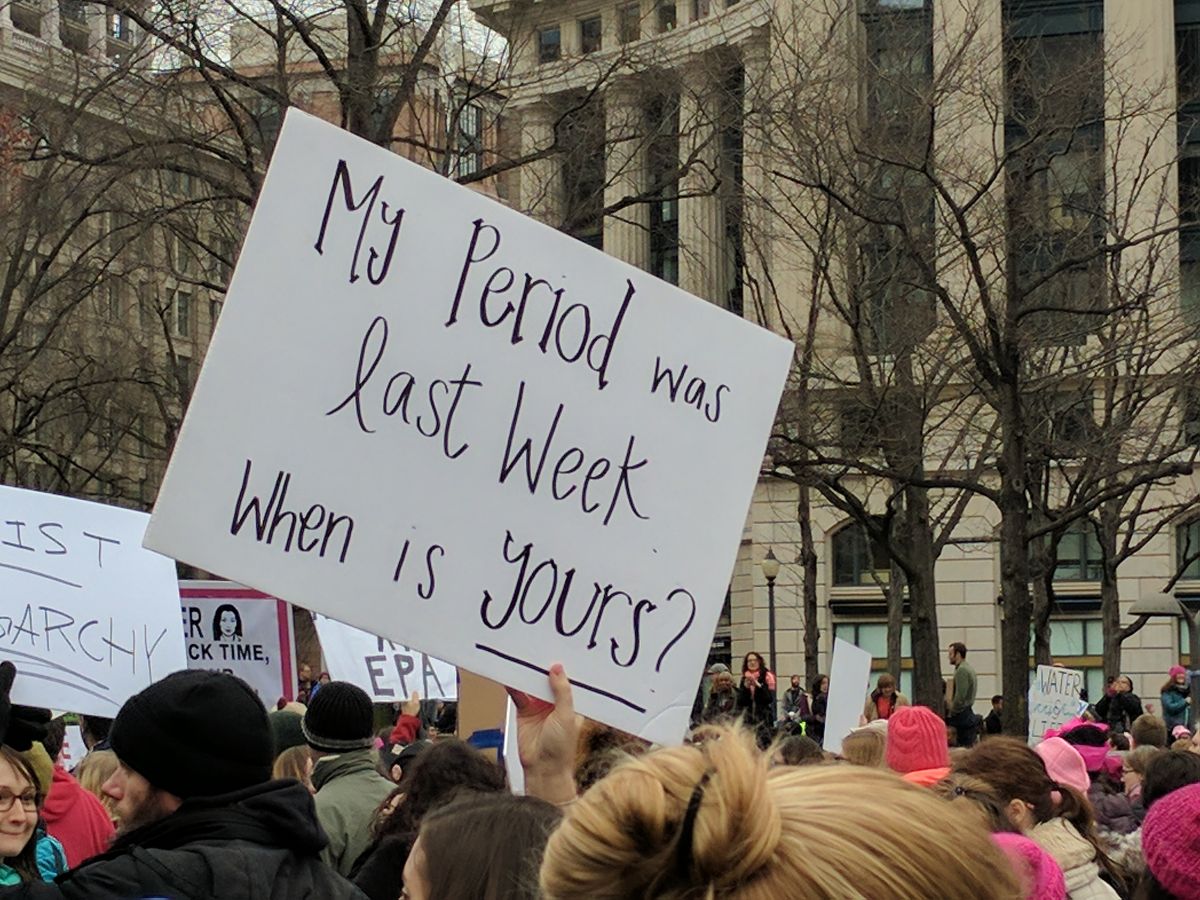 My Period was
last Week
When is yours?
IST
ARCHY
ER
CK TIME,
EPA
WATER